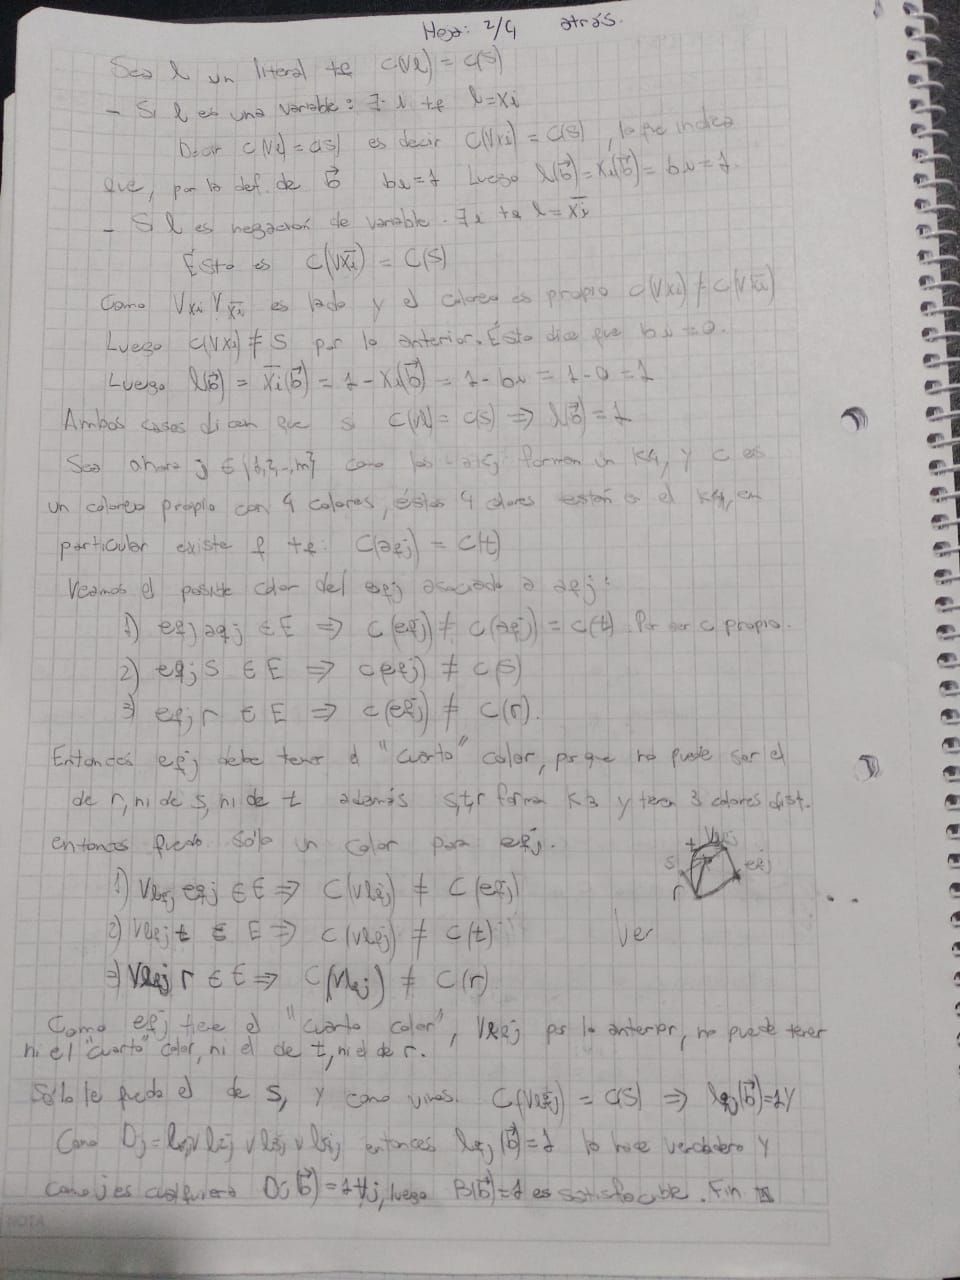 Hoja: 2/4 atrás.
Sea l un literal tq C(Vl) = C(S)
- Si l es una variable: ∃ i tq l = xi
Decir C(Vl) = C(S) es decir C(Vxi) = C(S), lo que indica
que, por la def. de b⃗ bi = 1 Luego l(b⃗) = xi(b⃗) = bi = 1.
- Si l es negación de variable. ∃ i tq l = x̄i
Ésto es C(Vx̄i) = C(S)
Como Vxi Vx̄i es lado y el coloreo es propio C(Vxi) ≠ C(Vx̄i)
Luego C(Vxi) ≠ S por lo anterior. Ésto dice que bi = 0.
Luego l(b⃗) = x̄i(b⃗) = 1 - xi(b⃗) = 1 - bi = 1 - 0 = 1
Ambos casos dicen que si C(Vl) = C(S) ⇒ l(b⃗) = 1
Sea ahora j ∈ {1,2,..,m} como los forman un K4, y C es
un coloreo propio con 4 colores, éstos 4 colores están en el K4, en
particular existe q tq: C(aqj) = C(t)
Veamos el posible color del eqj asociado a aqj:
1) eqj aqj ∈ E ⇒ C(eqj) ≠ C(aqj) = C(t). Por ser C propio.
2) eqj S ∈ E ⇒ C(eqj) ≠ C(S)
3) eqj r ∈ E ⇒ C(eqj) ≠ C(r).
Entonces eqj debe tener el "cuarto" color, porque no puede ser el
de r, ni de s, ni de t además s,t,r forma K3 y tern 3 colores dist.
entonces queda sólo un color para eqj.
t Vlqj
s eqj
r
1) Vlqj eqj ∈ E ⇒ C(Vlqj) ≠ C(eqj)
2) Vlqj t ∈ E ⇒ C(Vlqj) ≠ C(t)
Ver
3) Vlqj r ∈ E ⇒ C(Vlqj) ≠ C(r)
Como eqj tiene el "cuarto color", Vlqj por lo anterior, no puede tener
ni el "cuarto" color, ni el de t, ni el de r.
Sólo le queda el de S, y como vimos C(Vlqj) = C(S) ⇒ lqj(b⃗) = 1 y
Como Dj = l1j v l2j v l3j v l4j entonces lqj(b⃗) = 1 lo hace verdadero y
como j es cualquiera Dj(b⃗) = 1 ∀j, luego B(b⃗) = 1 es satisfacible. Fin
NOTA